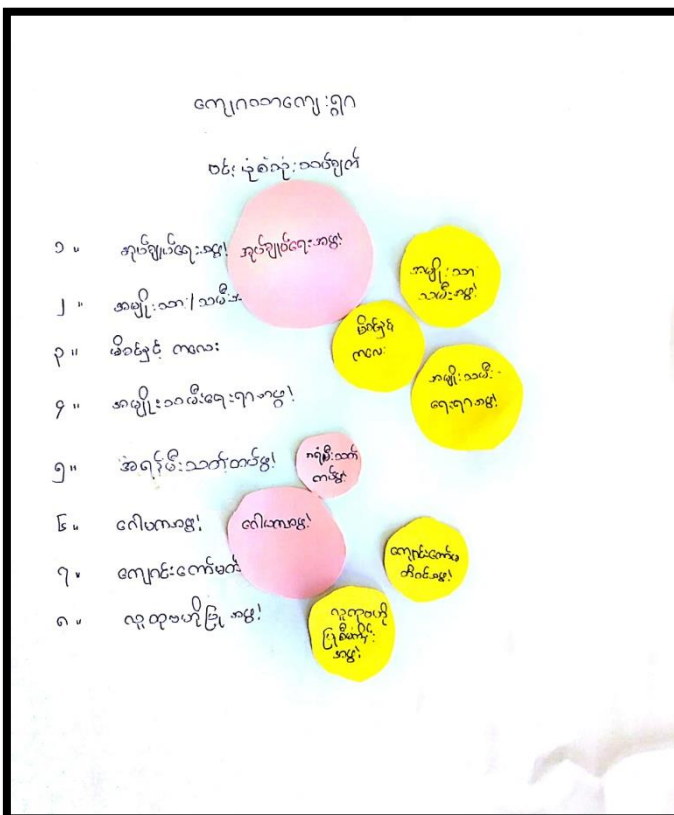 ကျေးရွာ
ဗင်းပုံစံသုံးသပ်ချက်
၁။ အုပ်ချုပ်ရေးအဖွဲ့
၂။ အမျိုးသား/သမီး
၃။ မိခင်နှင့် ကလေး
၄။ အမျိုးသမီးရေးရာအဖွဲ့
၅။ အရန်မီးသတ်တပ်ဖွဲ့
၆။ ဂေါပကအဖွဲ့
၇။ ကျောင်းကော်မတီ
၈။ လူထုဗဟိုပြု အဖွဲ့
အုပ်ချုပ်ရေးအဖွဲ့
အမျိုးသား
သမီးအဖွဲ့
မိခင်နှင့်
ကလေး
အမျိုးသမီး
ရေးရာအဖွဲ့
အရံမီးသတ်
တပ်ဖွဲ့
ဂေါပကအဖွဲ့
လူထုဗဟို
ပြုစီမံကိန်း
အဖွဲ့